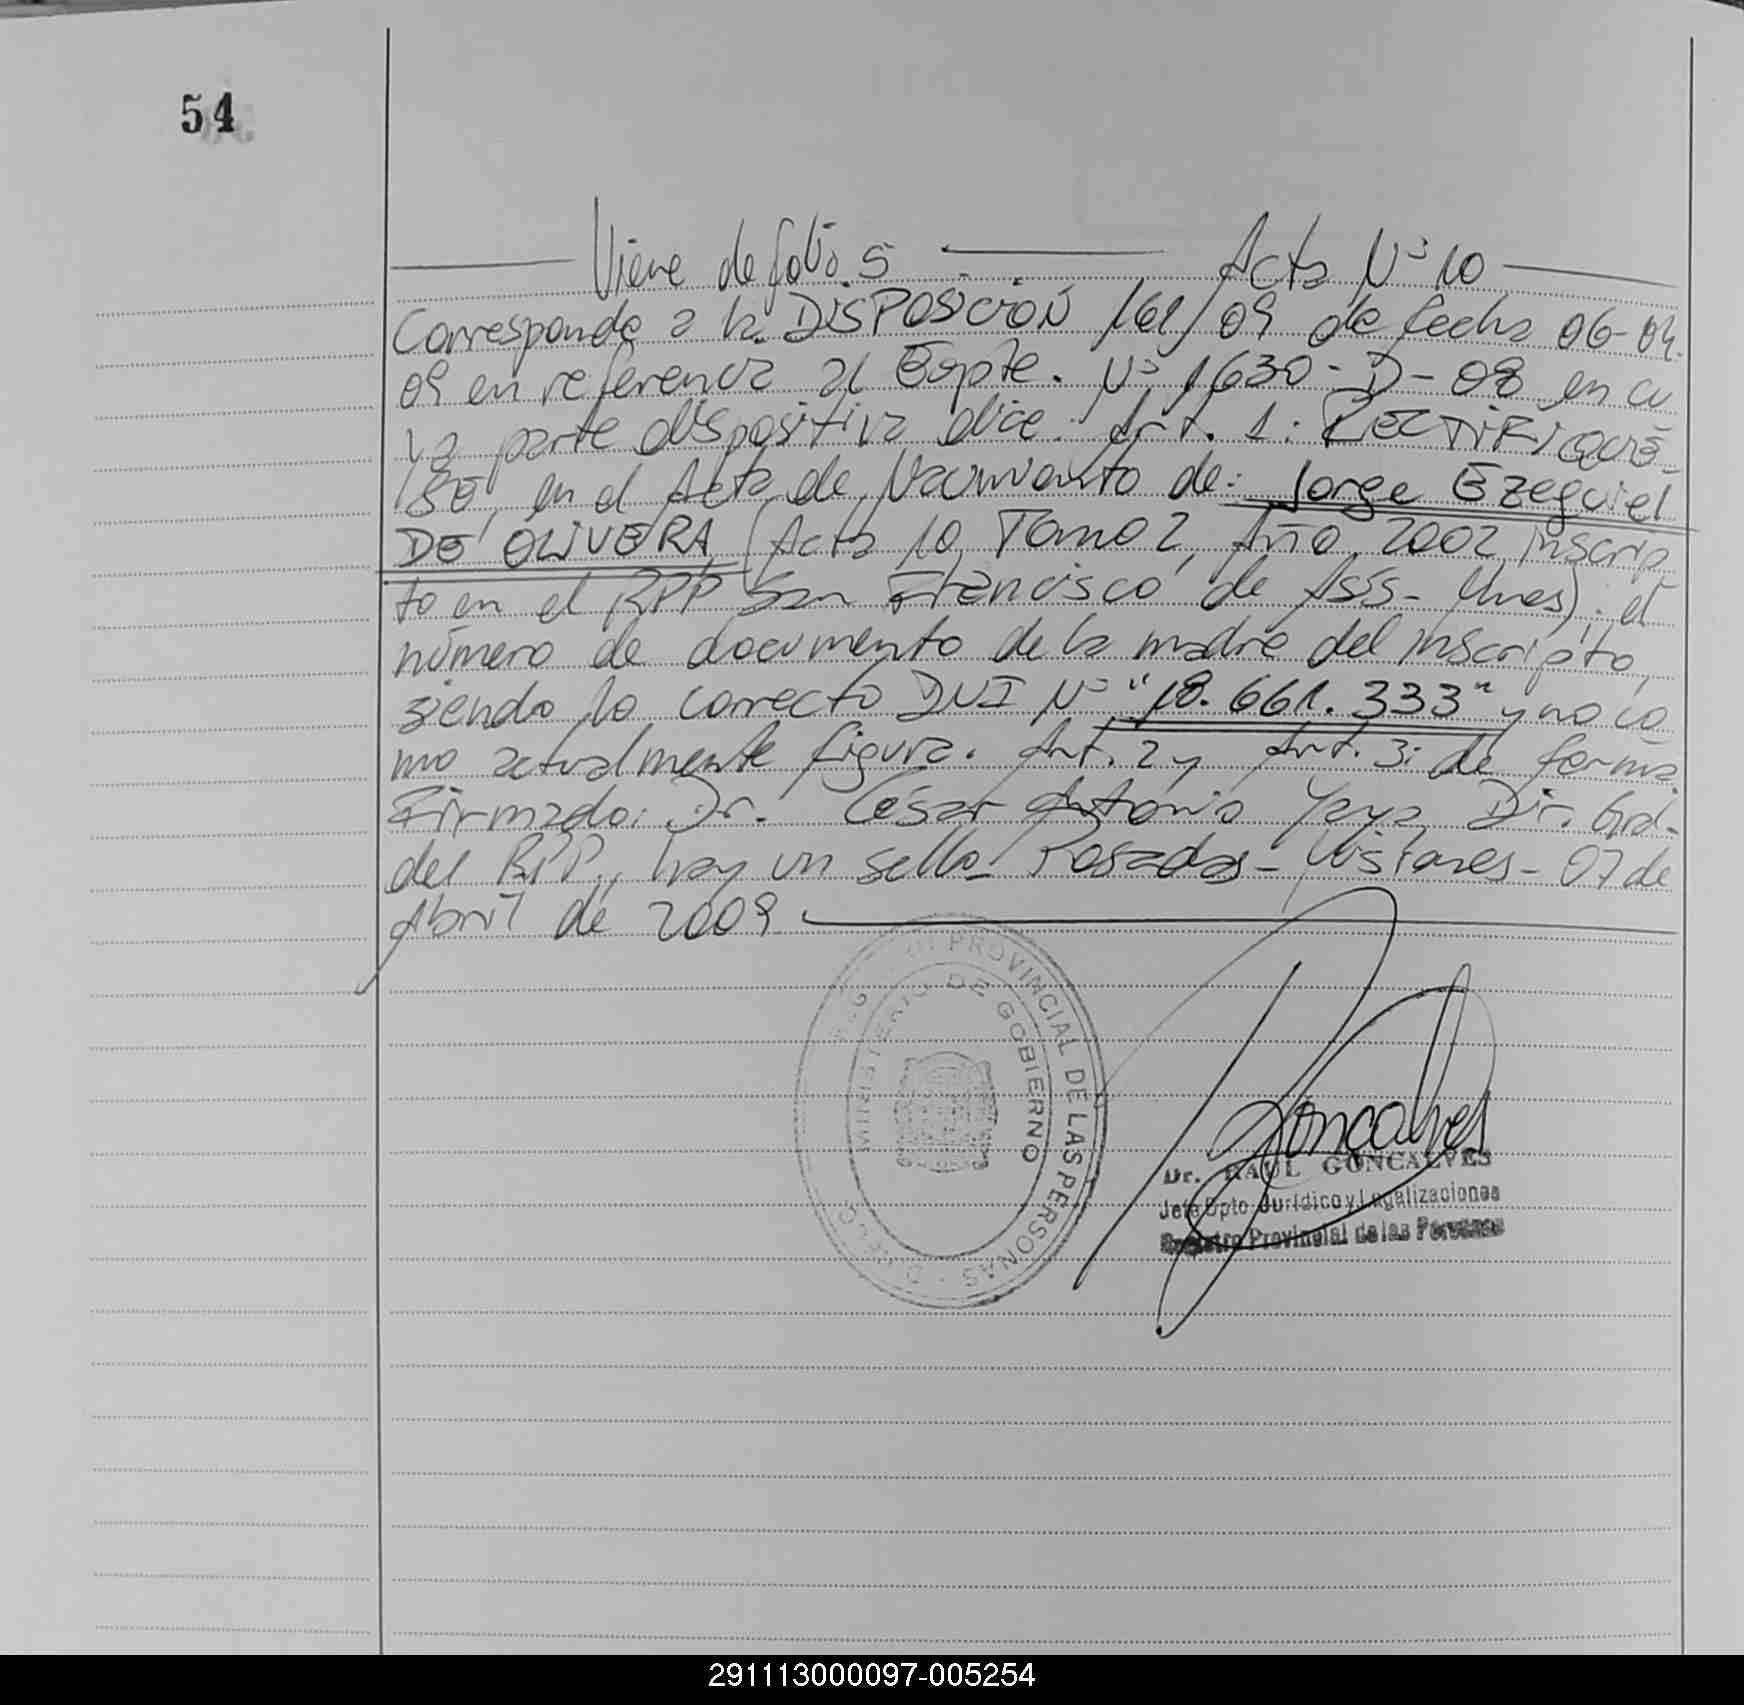 54
Viene de folio 5 Acta Nº 10
Corresponde a la DISPOSICIÓN 161/09 de fecha 06-04-
09 en referencia al Expte. Nº 1630-D-08 en cu
ya parte dispositiva dice: Art. 1: RECTIFIQUE-
SE, en el Acta de Nacimiento de: Jorge Ezequiel
DE OLIVERA (Acta 10, Tomo 2, Año 2002 inscrip
to en el RPP San Francisco de Asís- Mnes); el
número de documento de la madre del inscripto,
siendo lo correcto DNI Nº "18.661.333" y no co
mo actualmente figura. Art. 2 y Art. 3: de forma
Firmado: Dr. César Antonio Yaya Dir. Gral.
del RPP., hay un sello- Posadas- Misiones- 07 de
Abril de 2009
REGISTRO PROVINCIAL DE LAS PERSONAS
MINISTERIO DE GOBIERNO
Goncalves
Dr. RAUL GONCALVES
Jefe Dpto. Jurídico y Legalizaciones
Registro Provincial de las Personas
291113000097-005254